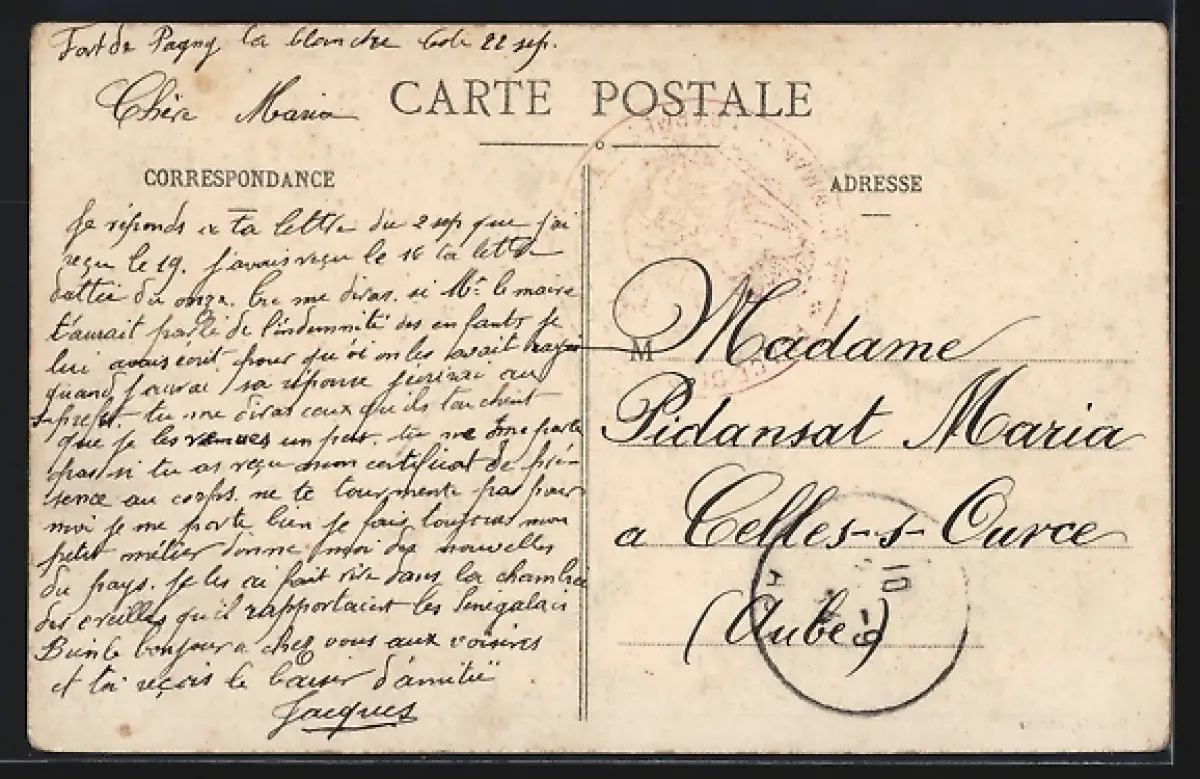 Fort de Pagny la blanche Cote 22 sep.
Chère Maria
CARTE POSTALE
CORRESPONDANCE
ADRESSE
Je réponds a ta lettre du 2 sep que j'ai
reçu le 19. j'avais reçu le 16 ta lettre
dattée du onze. tu me diras si Mr le maire
t'aurait parlé de l'indemnité des enfants je
lui avais écrit pour qu'oi on les avait
quand j'aurai sa réponse j'ecrirai au
s-prefet. tu me diras ceux qu'ils touchent
que je les un peu. tu ne me parle
pas si tu as reçu mon certificat de pré-
sence au corps. ne te tourmente pas pour
moi je me porte bien je fais toujours mon
petit métier donne moi des nouvelles
du pays. je les ai fait rire dans la chambre
des oreilles qu'il rapportaient les Senegalais
Bien le bonjour a chez vous aux voisines
et toi reçois le baiser d'amitié
Jacques
M Madame
Pidansat Maria
a Celles-s-Ource
(Aube)